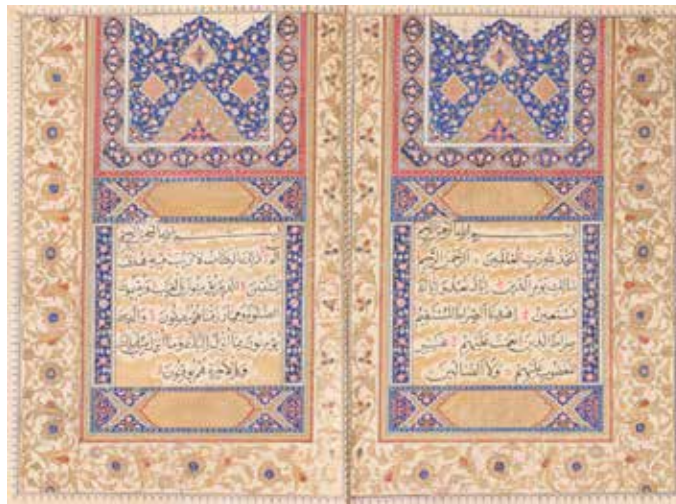 بسم الله الرحمن الرحيم
الحمد لله رب العالمين الرحمن الرحيم
مالك يوم الدين اياك نعبد واياك
نستعين اهدنا الصراط المستقيم
صراط الذين انعمت عليهم غير
المغضوب عليهم ولا الضالين
بسم الله الرحمن الرحيم
الم ذلك الكتاب لا ريب فيه هدى
للمتقين الذين يؤمنون بالغيب ويقيمون
الصلوة ومما رزقناهم ينفقون والذين
يؤمنون بما انزل اليك وما انزل من قبلك
وبالاخرة هم يوقنون